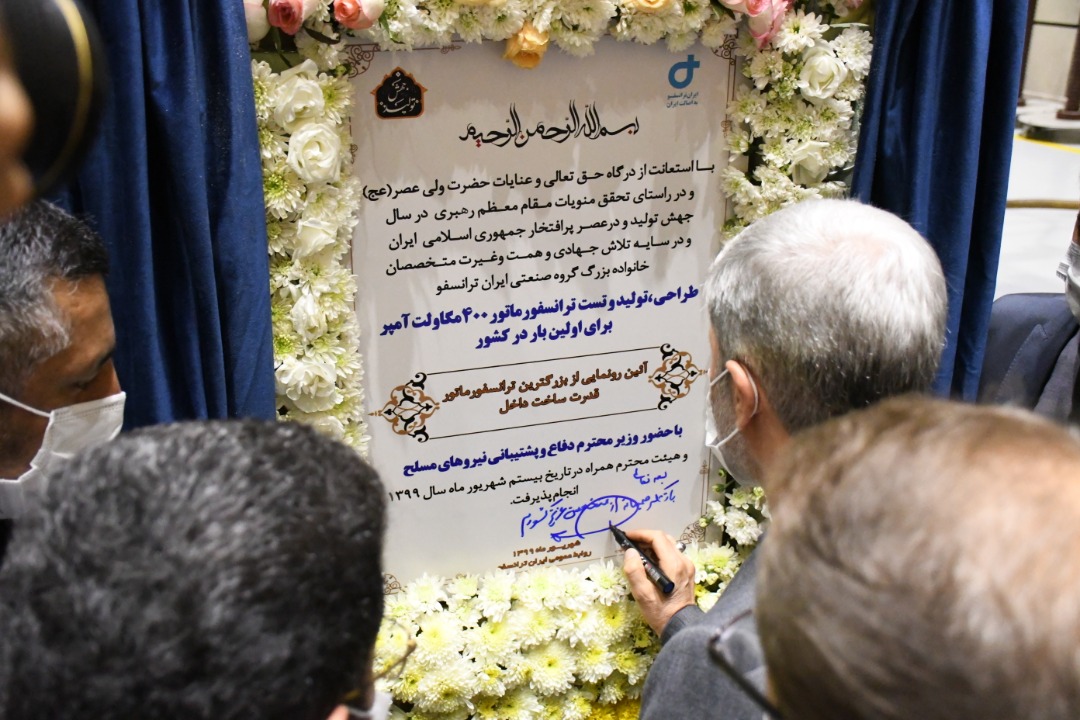 جهش تولید
ایران ترانسفو
به اصالت ایران
بسم الله الرحمن الرحیم
با استعانت از درگاه حق تعالی و عنایات حضرت ولی عصر(عج)
و در راستای تحقق منویات مقام معظم رهبری در سال
جهش تولید و در عصر پرافتخار جمهوری اسلامی ایران
و در سایه تلاش جهادی و همت وغیرت متخصصان
خانواده بزرگ گروه صنعتی ایران ترانسفو
طراحی، تولید و تست ترانسفورماتور ۴۰۰ مگاولت آمپر
برای اولین بار در کشور
آئین رونمایی از بزرگترین ترانسفورماتور
قدرت ساخت داخل
با حضور وزیر محترم دفاع و پشتیبانی نیروهای مسلح
و هیئت محترم همراه در تاریخ بیستم شهریور ماه سال ۱۳۹۹
انجام پذیرفت.
بسمه تعالی
شهریور ماه ۱۳۹۹
روابط عمومی ایران ترانسفو